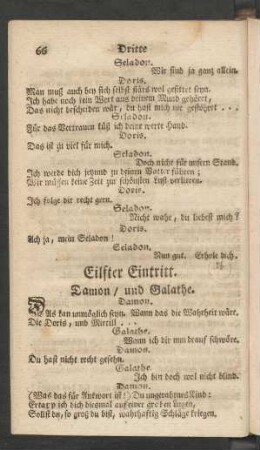 66 Dritte
Seladon.
Wir sind ja ganz allein.
Doris.
Man muß auch bey sich selbst stäts wol gesittet seyn.
Ich habe noch kein Wort aus deinem Mund gehört,
Das nicht bescheiden wär, du hast mich nie gestöhret ...
Seladon.
Für das Vertrauen küß ich deine werte Hand.
Doris.
Das ist zu viel für mich.
Seladon.
Doch nicht für unsern Stand.
Ich werde dich jetzund zu deinem Vatter führen;
Wir müssen keine Zeit zur schönsten Lust verlieren.
Doris.
Ich folge dir recht gern.
Seladon.
Nicht wahr, du liebest mich?
Doris.
Ach ja, mein Seladon!
Seladon.
Nun gut. Erhole dich.
Eilfter Eintritt.
Damon / und Galathe.
Damon.
DAs kan unmöglich seyn. Wann das die Wahrheit wäre.
Die Doris, und Mirtill ...
Galathe.
Wann ich dir nun drauf schwöre.
Damon.
Du hast nicht recht gesehn.
Galathe.
Ich bin doch wol nicht blind.
Damon.
(Was das für Antwort ist!) Du ungerathnes Kind:
Ertapp ich dich diesmal auf einer groben Lügen,
Sollst du, so groß du bist, wahrhaftig Schläge kriegen.